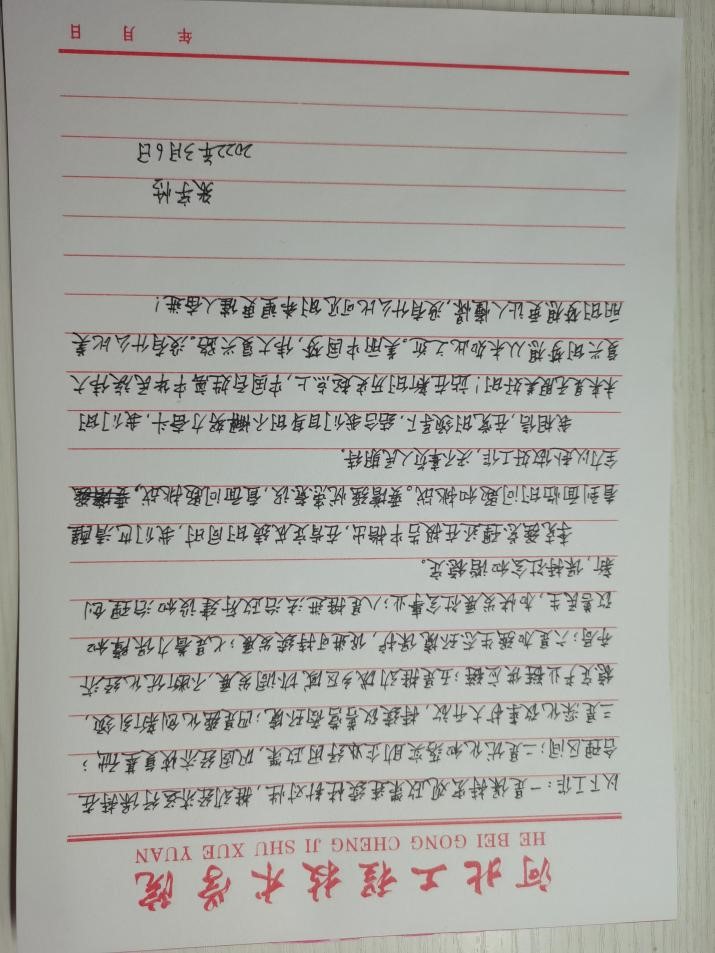 河北工程技术学院
HE BEI GONG CHENG JI SHU XUE YUAN
以下工作：一是保持宏观政策连续性针对性，推动经济运行保持在
合理区间；二是优化和落实助企纾困政策，巩固经济恢复基础；
三是深化改革扩大开放，持续改善营商环境；四是强化创新引领，
稳定产业链供应链；五是推动城乡区域协调发展，不断优化经济
布局；六是加强生态环境保护，促进可持续发展；七是着力保障和
改善民生，加快发展社会事业；八是推进法治政府建设和治理创
新，保持社会和谐稳定。
李克强总理还在报告中指出，在肯定成绩的同时，我们也清醒
看到面临的问题和挑战。要增强忧患意识，直面问题挑战，
全力以赴做好工作，决不辜负人民期待。
我相信，在党的领导下，结合我们自身的不懈努力奋斗，我们的
未来是无限美好的！站在新的历史起点上，中国百姓离中华民族伟大
复兴的梦想从未如此之近。美丽中国梦，伟大复兴路。没有什么比美
丽的梦想更让人憧憬，没有什么比可见的希望更催人奋进！
2022年3月6日
年 月 日